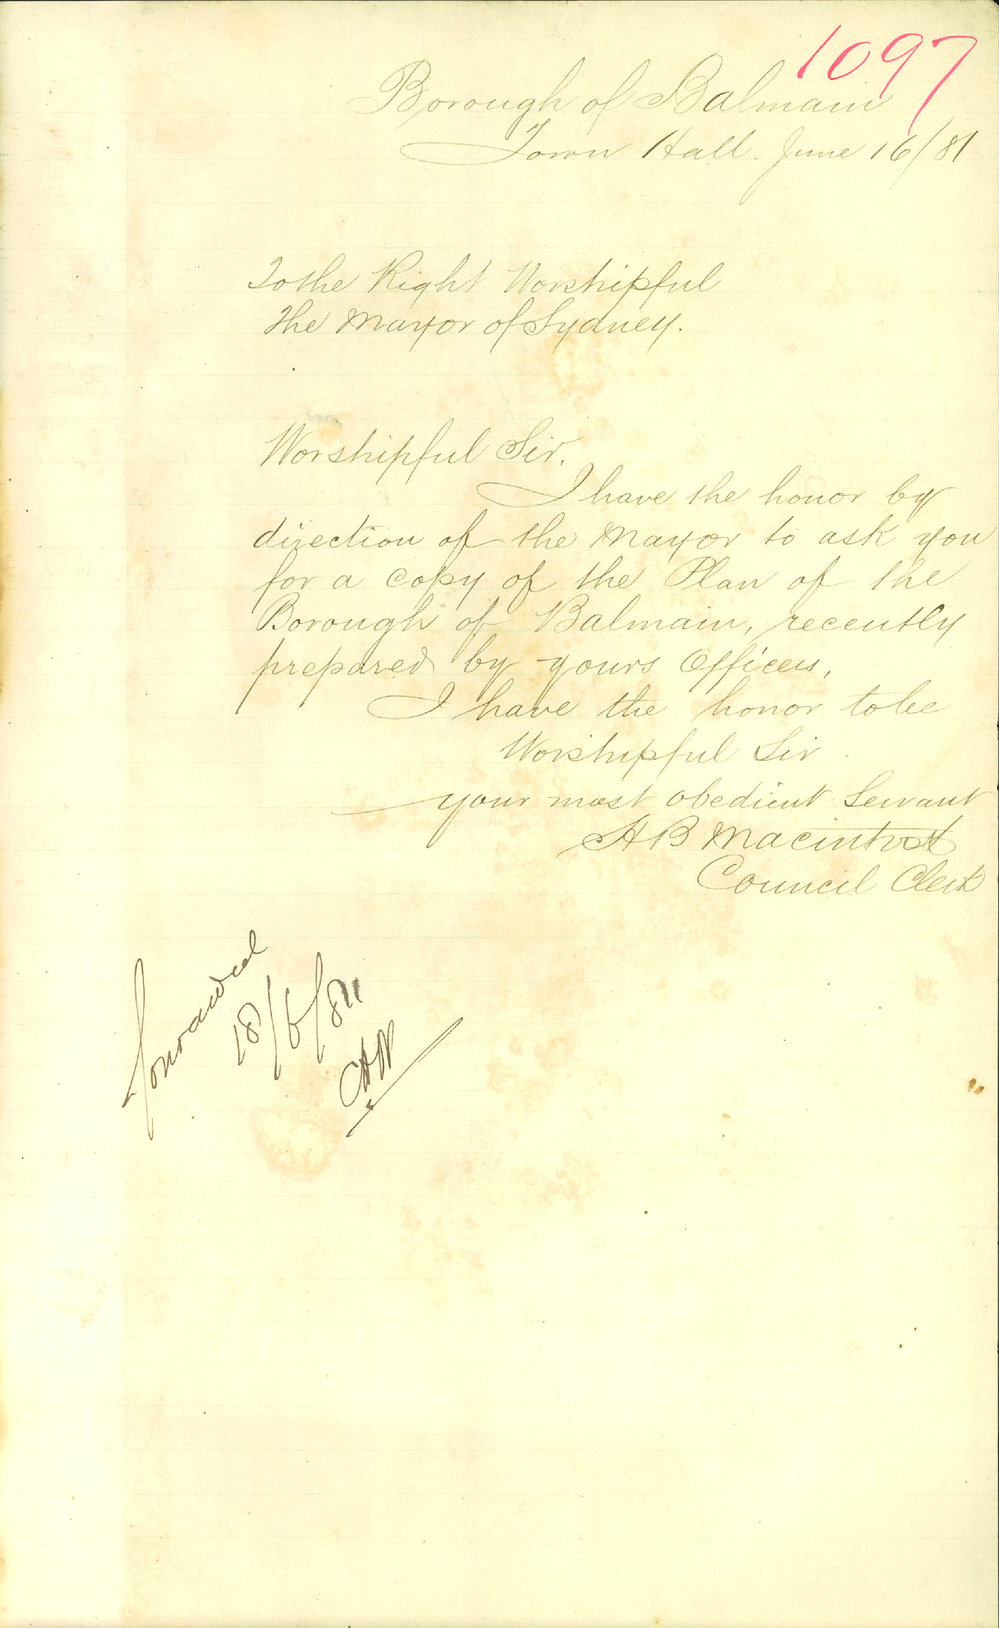 1097
Borough of Balmain
Town Hall. June 16/81
To the Right Worshipful
The Mayor of Sydney.
Worshipful Sir.
I have the honor by
direction of the Mayor to ask you
for a copy of the Plan of the
Borough of Balmain, recently
prepared by yours Officers,
I have the honor to be
Worshipful Sir.
your most obedient Servant
H B Macintosh
Council Clerk
forwarded
18/6/81